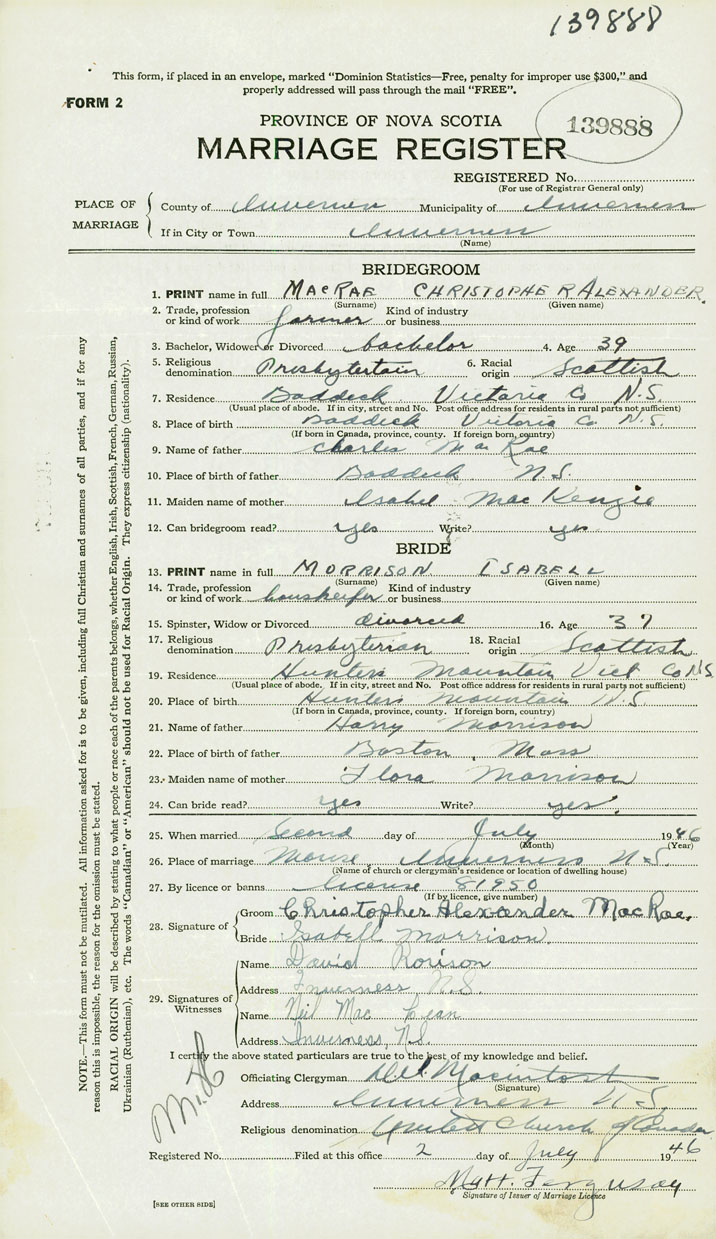 139888
This form, if placed in an envelope, marked "Dominion Statistics—Free, penalty for improper use $300," and
properly addressed will pass through the mail "FREE".
FORM 2
PROVINCE OF NOVA SCOTIA
139888
MARRIAGE REGISTER
REGISTERED No.
(For use of Registrar General only)
PLACE OF MARRIAGE
County of Inverness Municipality of Inverness
If in City or Town Inverness
(Name)
BRIDEGROOM
1. PRINT name in full MACRAE CHRISTOPHER ALEXANDER
(Surname) (Given name)
2. Trade, profession or kind of work farmer Kind of industry or business
3. Bachelor, Widower or Divorced bachelor 4. Age 39
5. Religious denomination Presbytertain 6. Racial origin Scottish
7. Residence Baddeck Victoria Co N.S.
(Usual place of abode. If in city, street and No. Post office address for residents in rural parts not sufficient)
8. Place of birth Baddeck Victoria Co N.S.
(If born in Canada, province, county. If foreign born, country)
9. Name of father Charles Mac Rae
10. Place of birth of father Baddeck N.S.
11. Maiden name of mother Isabel Mac Kenzie
12. Can bridegroom read? yes Write? yes
BRIDE
13. PRINT name in full MORRISON ISABELL
(Surname) (Given name)
14. Trade, profession or kind of work houskeeper Kind of industry or business
15. Spinster, Widow or Divorced divorced 16. Age 37
17. Religious denomination Presbyterian 18. Racial origin Scottish
19. Residence Hunters Mountain Vict Co N.S.
(Usual place of abode. If in city, street and No. Post office address for residents in rural parts not sufficient)
20. Place of birth Hunters Mountain N.S.
(If born in Canada, province, county. If foreign born, country)
21. Name of father Harry Morrison
22. Place of birth of father Boston, Mass
23. Maiden name of mother Flora Morrison
24. Can bride read? yes Write? yes.
25. When married Second day of July 1946
(Month) (Year)
26. Place of marriage Manse, Inverness N.S.
(Name of church or clergyman's residence or location of dwelling house)
27. By licence or banns license 81950
(If by licence, give number)
28. Signature of
Groom Christopher Alexander MacRae.
Bride Isabell Morrison.
29. Signatures of Witnesses
Name David Rorison
Address Inverness N.S.
Name Neil Mac Lean
Address Inverness, N.S.
I certify the above stated particulars are true to the best of my knowledge and belief.
Officiating Clergyman Macintosh
(Signature)
Address Inverness N.S.
Religious denomination United Church of Canada
Registered No. Filed at this office 2 day of July 1946
Ferguson
Signature of Issuer of Marriage Licence
[SEE OTHER SIDE]
NOTE.—This form must not be mutilated. All information asked for is to be given, including full Christian and surnames of all parties, and if for any
reason this is impossible, the reason for the omission must be stated.
RACIAL ORIGIN will be described by stating to what people or race each of the parents belongs, whether English, Irish, Scottish, French, German, Russian,
Ukrainian (Ruthenian), etc. The words "Canadian" or "American" should not be used for Racial Origin. They express citizenship (nationality).